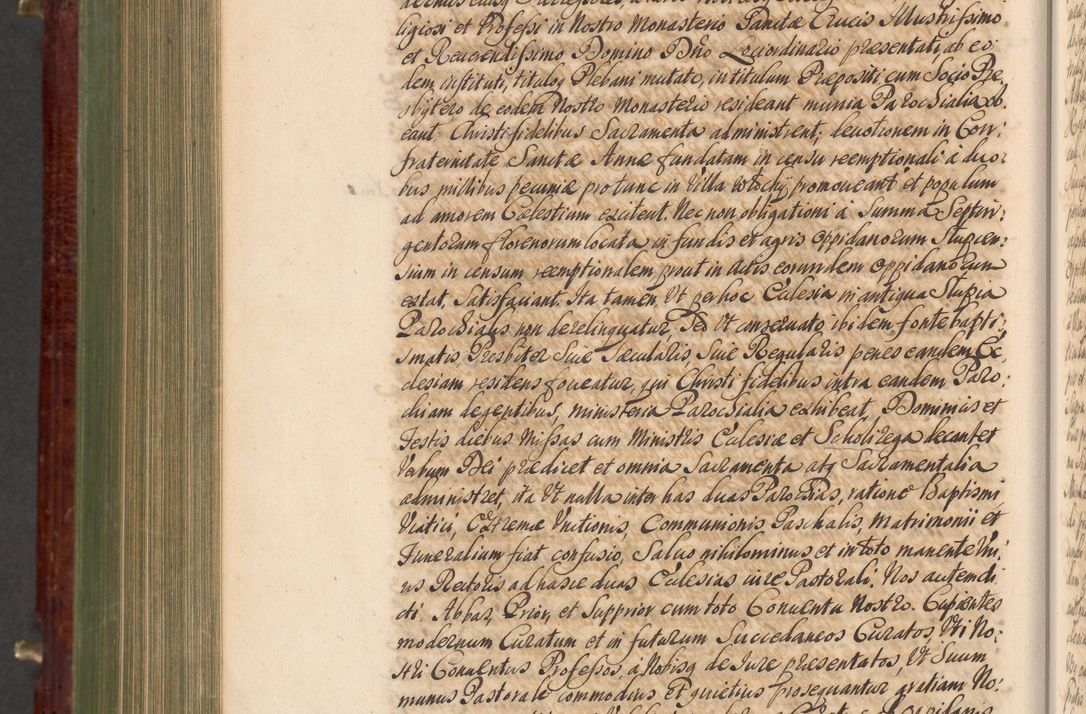 ligiosi et Professi in Nostro Monasterio Sanctæ Crucis Illustrissimo
et Reverendissimo Domino Dno Lociordinario præsentati, ab eo:
dem instituti, titulo Plebani mutato, in titulum Præpositi cum Socio Præ:
sbytero de eodem Nostro Monasterio resideant munia Parochialia ob:
eant Christi fidelibus Sacramenta administrent, devotionem in Con:
fraternitate Sanctæ Annæ fundatam in censu reemptionali à duo:
bus millibus pecuniæ pro tunc in Villa Włochy promoveant et populum
ad amorem Cælestium excitent. Nec non obligationi à Summa Septin:
gentorum florenorum locata in fundis et agris Oppidanorum Stupcen:
sium in censum reemptionalem, prout in Actis eorundem Oppidanorum
extat, Satisfaciant. Ita tamen, Ut per hoc Ecclesia in antiqua Stupia
Parochialis non derelinquatur, Sed Ut conservato ibidem fonte bapti:
smatis, Presbiter Sive Sæcularis Sive Regularis penes eandem Ec:
clesiam residens foveatur, qui Christi fidelibus intra eandem Paro:
chiam degentibus, ministeria Parochialia exhibeat, Dominicis et
Festis diebus Missas cum Ministris Ecclesiæ et Scholirega decantet
Verbum Dei prædicet et omnia Sacramenta atq Sacramentalia
administret, ita Ut nulla inter has duas Parochias, ratione Baptismi
Viatici, Extremæ Unctionis, Communionis Paschalis, Matrimonii et
Funeralium fiat confusio, Salvo nihilominus et in toto manente Uni:
us Rectoris ad hasce duas Ecclesias iure Pastorali. Nos autem di:
cti. Abbas, Prior, et Supprior cum toto Conventu Nostro. Cupientes
modernum Curatum et in futurum Succedaneos Curatos, Uti No:
stri Conventus Professos, à Nobisq de Jure præsentatos, Ut Suum
munus Pastorale commodius Et quietius prosequantur gratiam No: